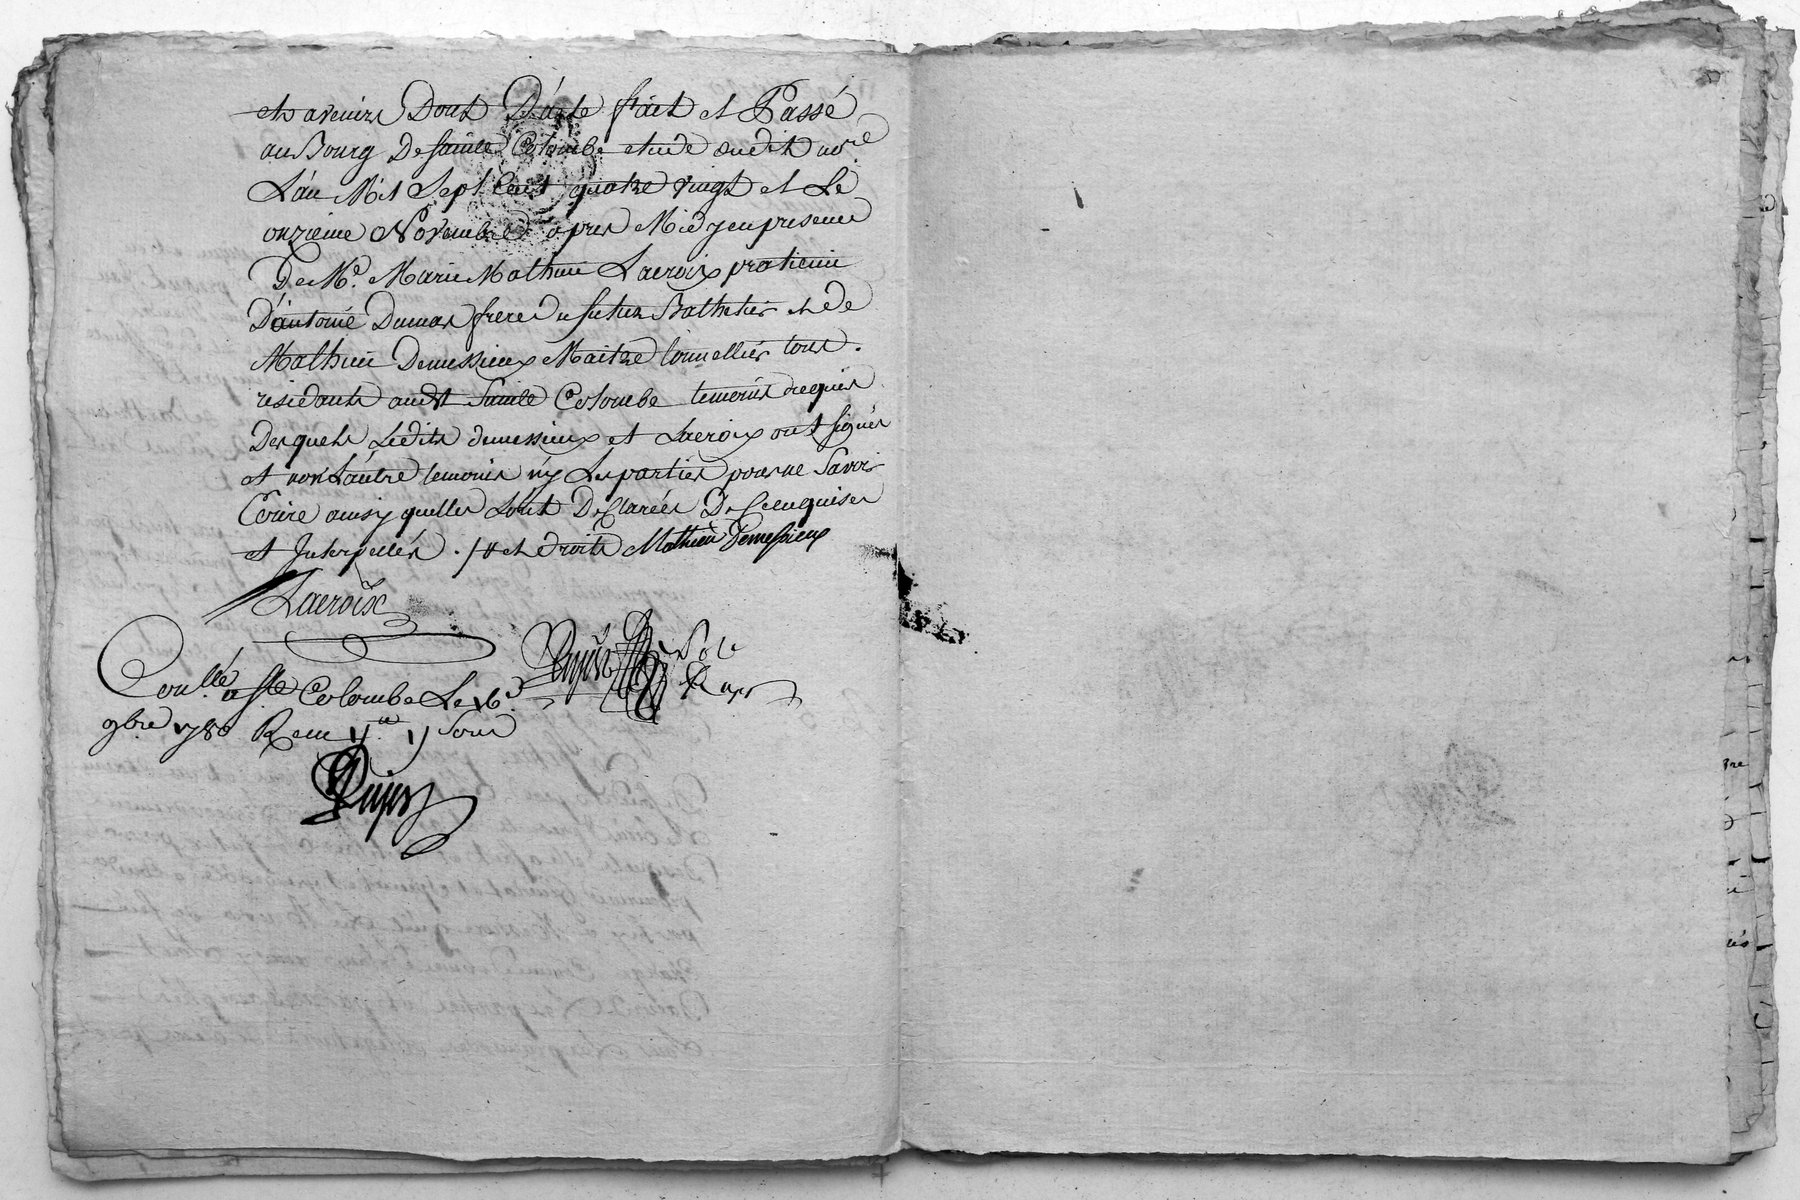 et avenir Dont D'acte fait et Passé
au Bourg De sainte Colombe etude dudit no.re
L'an Mil Sept Cent quatre vingt et Le
onzieme Novembre apres Midy en presence
De M.e Marie Mathieu Lacroix praticien
D'antoine Dumas frere u futur Bathelier et de
Mathieu Demessieux Maitre tonnellier tous
residants audit Sainte Colombe temoins requis
Desquels Ledits demessieux et Lacroix ont signés
et non L'autre temoins ny Les parties pour ne Savoir
Ecrire ainsy quelles sont Declarées De ce enquises
et Interpellés . /# et droits Mathieu Demessieux
Lacroix
Dujas Note
Royal
Con.llé a S.te Colombe Le 16.e
9bre 1780 Recu Sous
Dujas